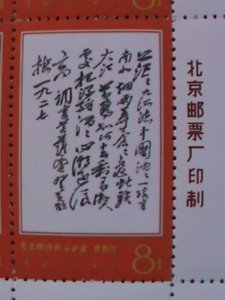 8分
北京邮票厂印制
茫茫九派流中国沉沉一线穿
南北烟雨莽苍苍龟蛇锁
大江黄鹤知何去剩有游人
处把酒酹滔滔心潮逐浪
高 调寄菩萨蛮登黄鹤
楼 一九二七
8分